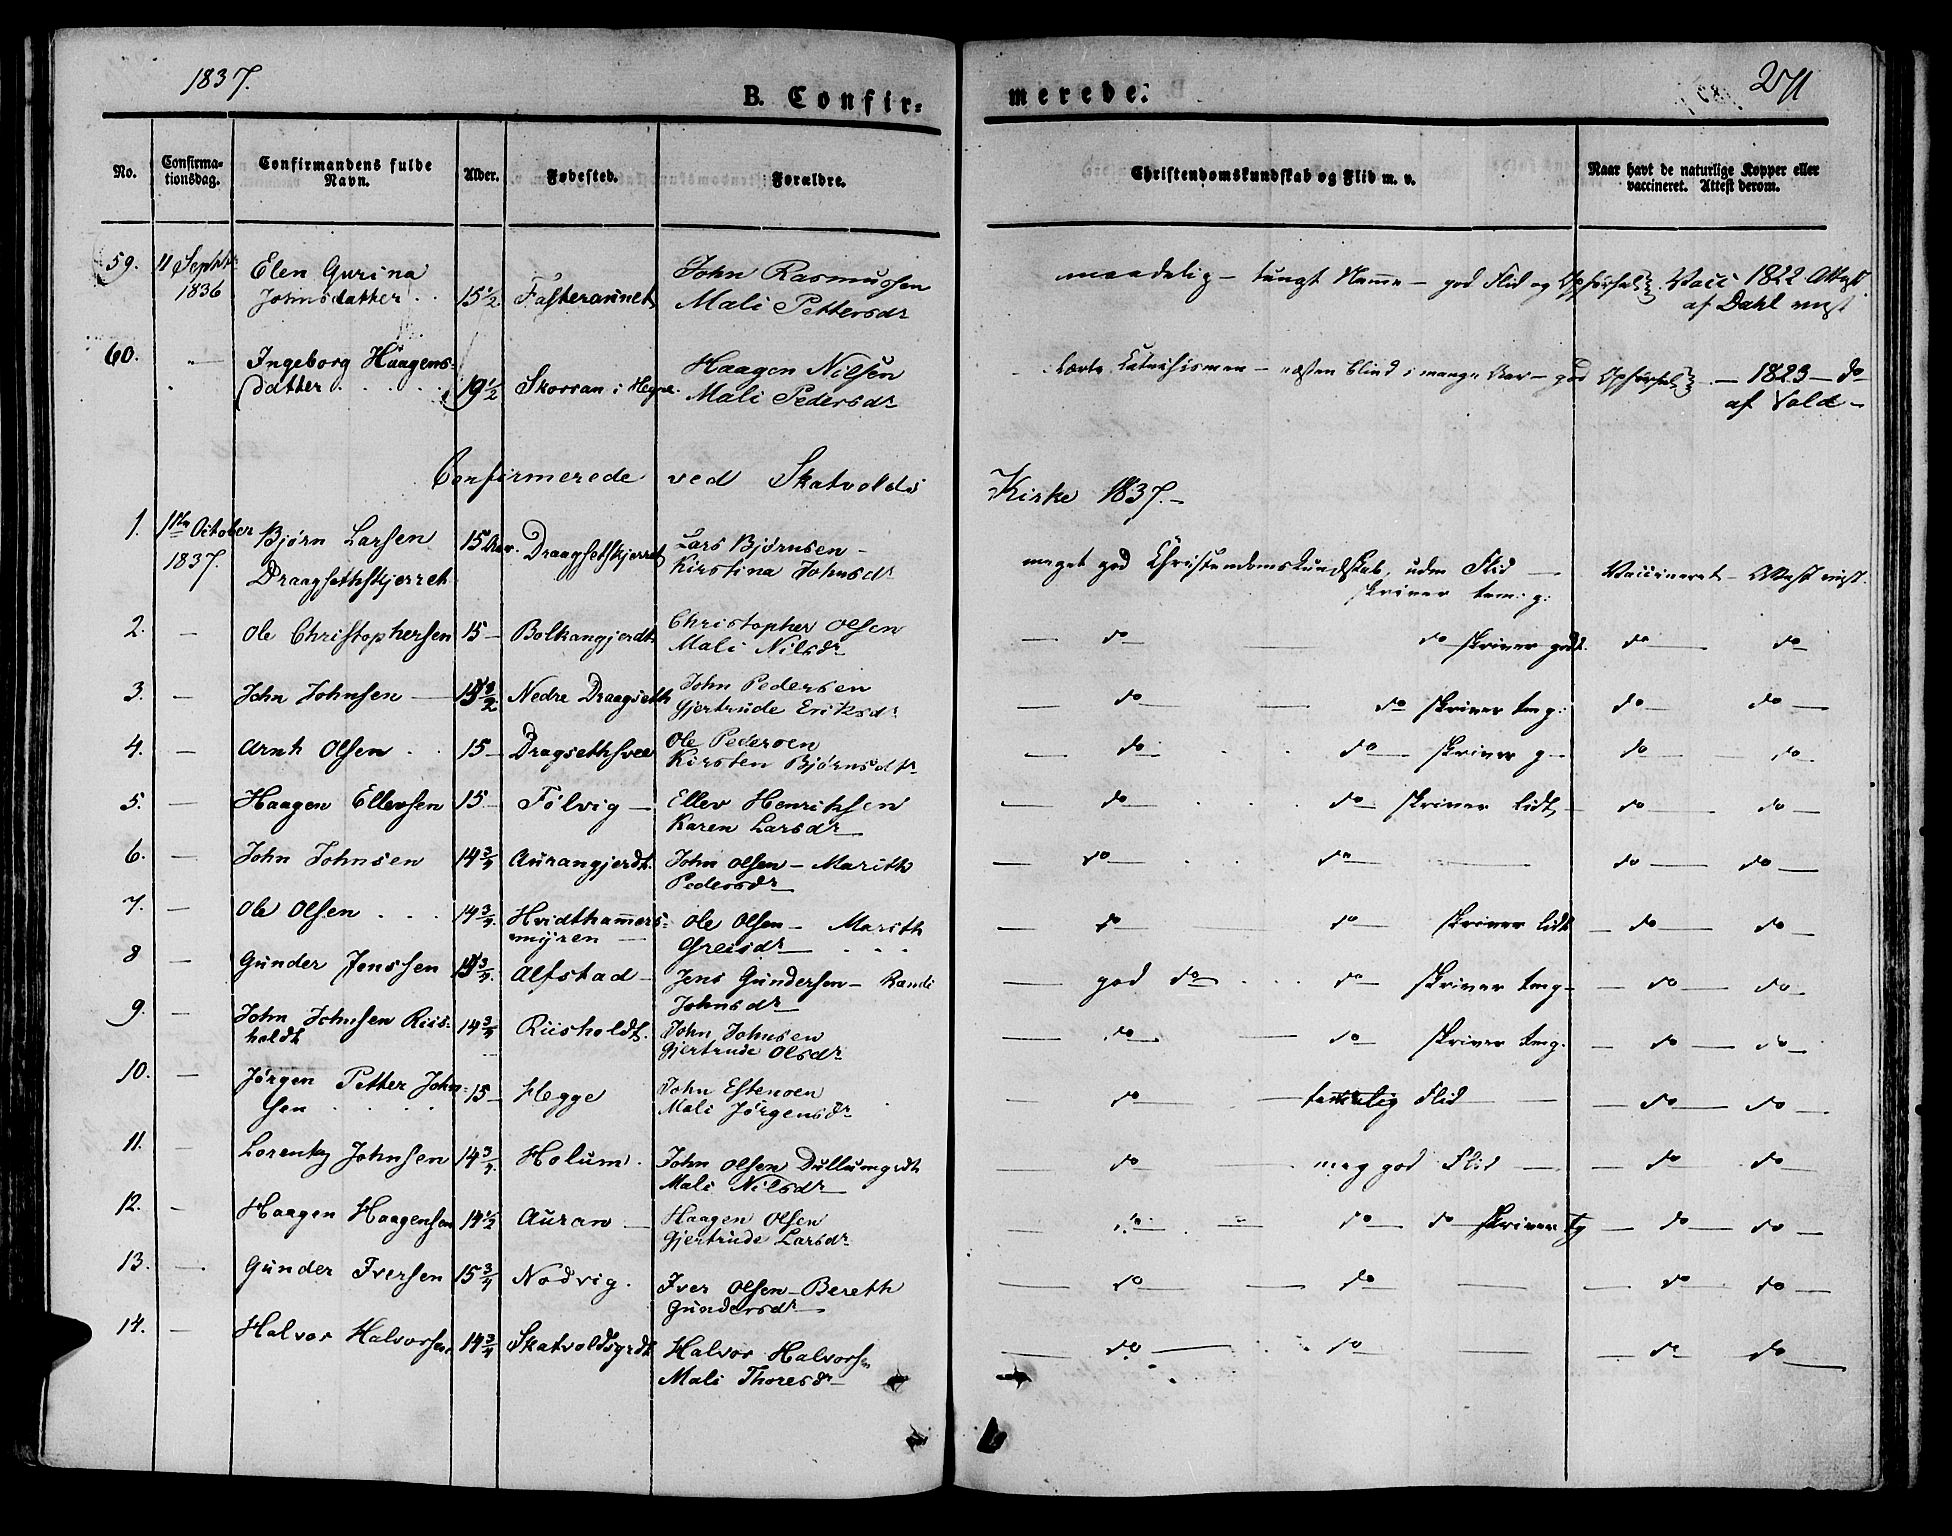 1837.
B. Confir-
merede.
271
No.
Confirma-
tionsdag.
Confirmandens fulde
Navn.
Alder.
Fødested.
Forældre.
Christendomskundskab og Flid m. v.
Naar havt de naturlige Kopper eller
vaccineret. Attest derom.
59. 11 Septbr 1836 Elen Gurina Johnsdatter 15 1/2 Fasteraunet John Rasmussen Mali Pettersdr maadelig – tungt Nemme – god Flid og Opførsel Vacc 1822 Attest af Dahl
60. " Ingeborg Haagens- datter 19 1/2 Skorran i Hegre Haagen Nilsen Mali Pedersdr Catechismen – næsten blind i mange Aar – god Opførsel – 1823 – do af Vold –
Confirmerede ved Skatvolds Kirke 1837. –
1. 1ste October 1837. Bjørn Larsen Draagsethskjerret 15 Aar. Draagsetskjerret Lars Bjørnsen – Kirstina Johnsdr meget god Christendomskundskab, Flid – skriver tem: g: Vaccineret – Attest
2. – Ole Christophersen 15 – Bolkangjerdt Christopher Olsen Mali Nilsdr – do – do skriver godt. do – do
3. – John Johnsen – Nedre Draagseth John Pedersen Gjertrude Eriksdr – do – do skriver tmg: do – do –
4. – Arnt Olsen . . 15 – Dragsethsvee Ole Pedersen Kirsten Bjørnsdtr – do . . do skriver g – do – do
5. – Haagen Ellevsen 15 – Følvig – Ellev Henrichsen Karen Larsdr – do . . do skriver lidt – do – do –
6. – John Johnsen 14 3/4 Aurangjerdt. John Olsen – Marith Pedersdr – do . . do – do – do –
7. – Ole Olsen . . . 14 3/4 Hvidthammers- myren – Ole Olsen – Marith Greisdr – do – do skriver lidt – do – do –
8 – Gunder Jenssen Alfstad – Jens Gundersen – Randi Johnsdr – god do . . do skriver tmg – – do – do –
9. – John Johnsen Riis- holdt 14 3/4 Riisholdt. John Johnsen Gjertrude Olsdr – do – do skriver tmg. – do – do –
10. – Jørgen Petter John- sen . . . . 15 – Hegge John Estensen Mali Jørgensdr – do – temmelig Flid – – do – do –
11. – Lorentz Johnsen 14 3/4 Holum. John Olsen Dullumgrdt Mali Nilsdr – do – meg god Flid – – do . do –
12. – Haagen Haagensen 14 1/2 Auran – Haagen Olsen Gjertrude Larsdr – do – do do skriver tg – do – do –
13. – Gunder Iversen 15 3/4 Nodvig. Iver Olsen – Bereth Gundersdr – do – do – – do – do –
14. – Halvor Halvorsen 14 3/4 Skatvoldsgrdt Halvor Halvorsen Mali Thoresdr – do – do – – do do –